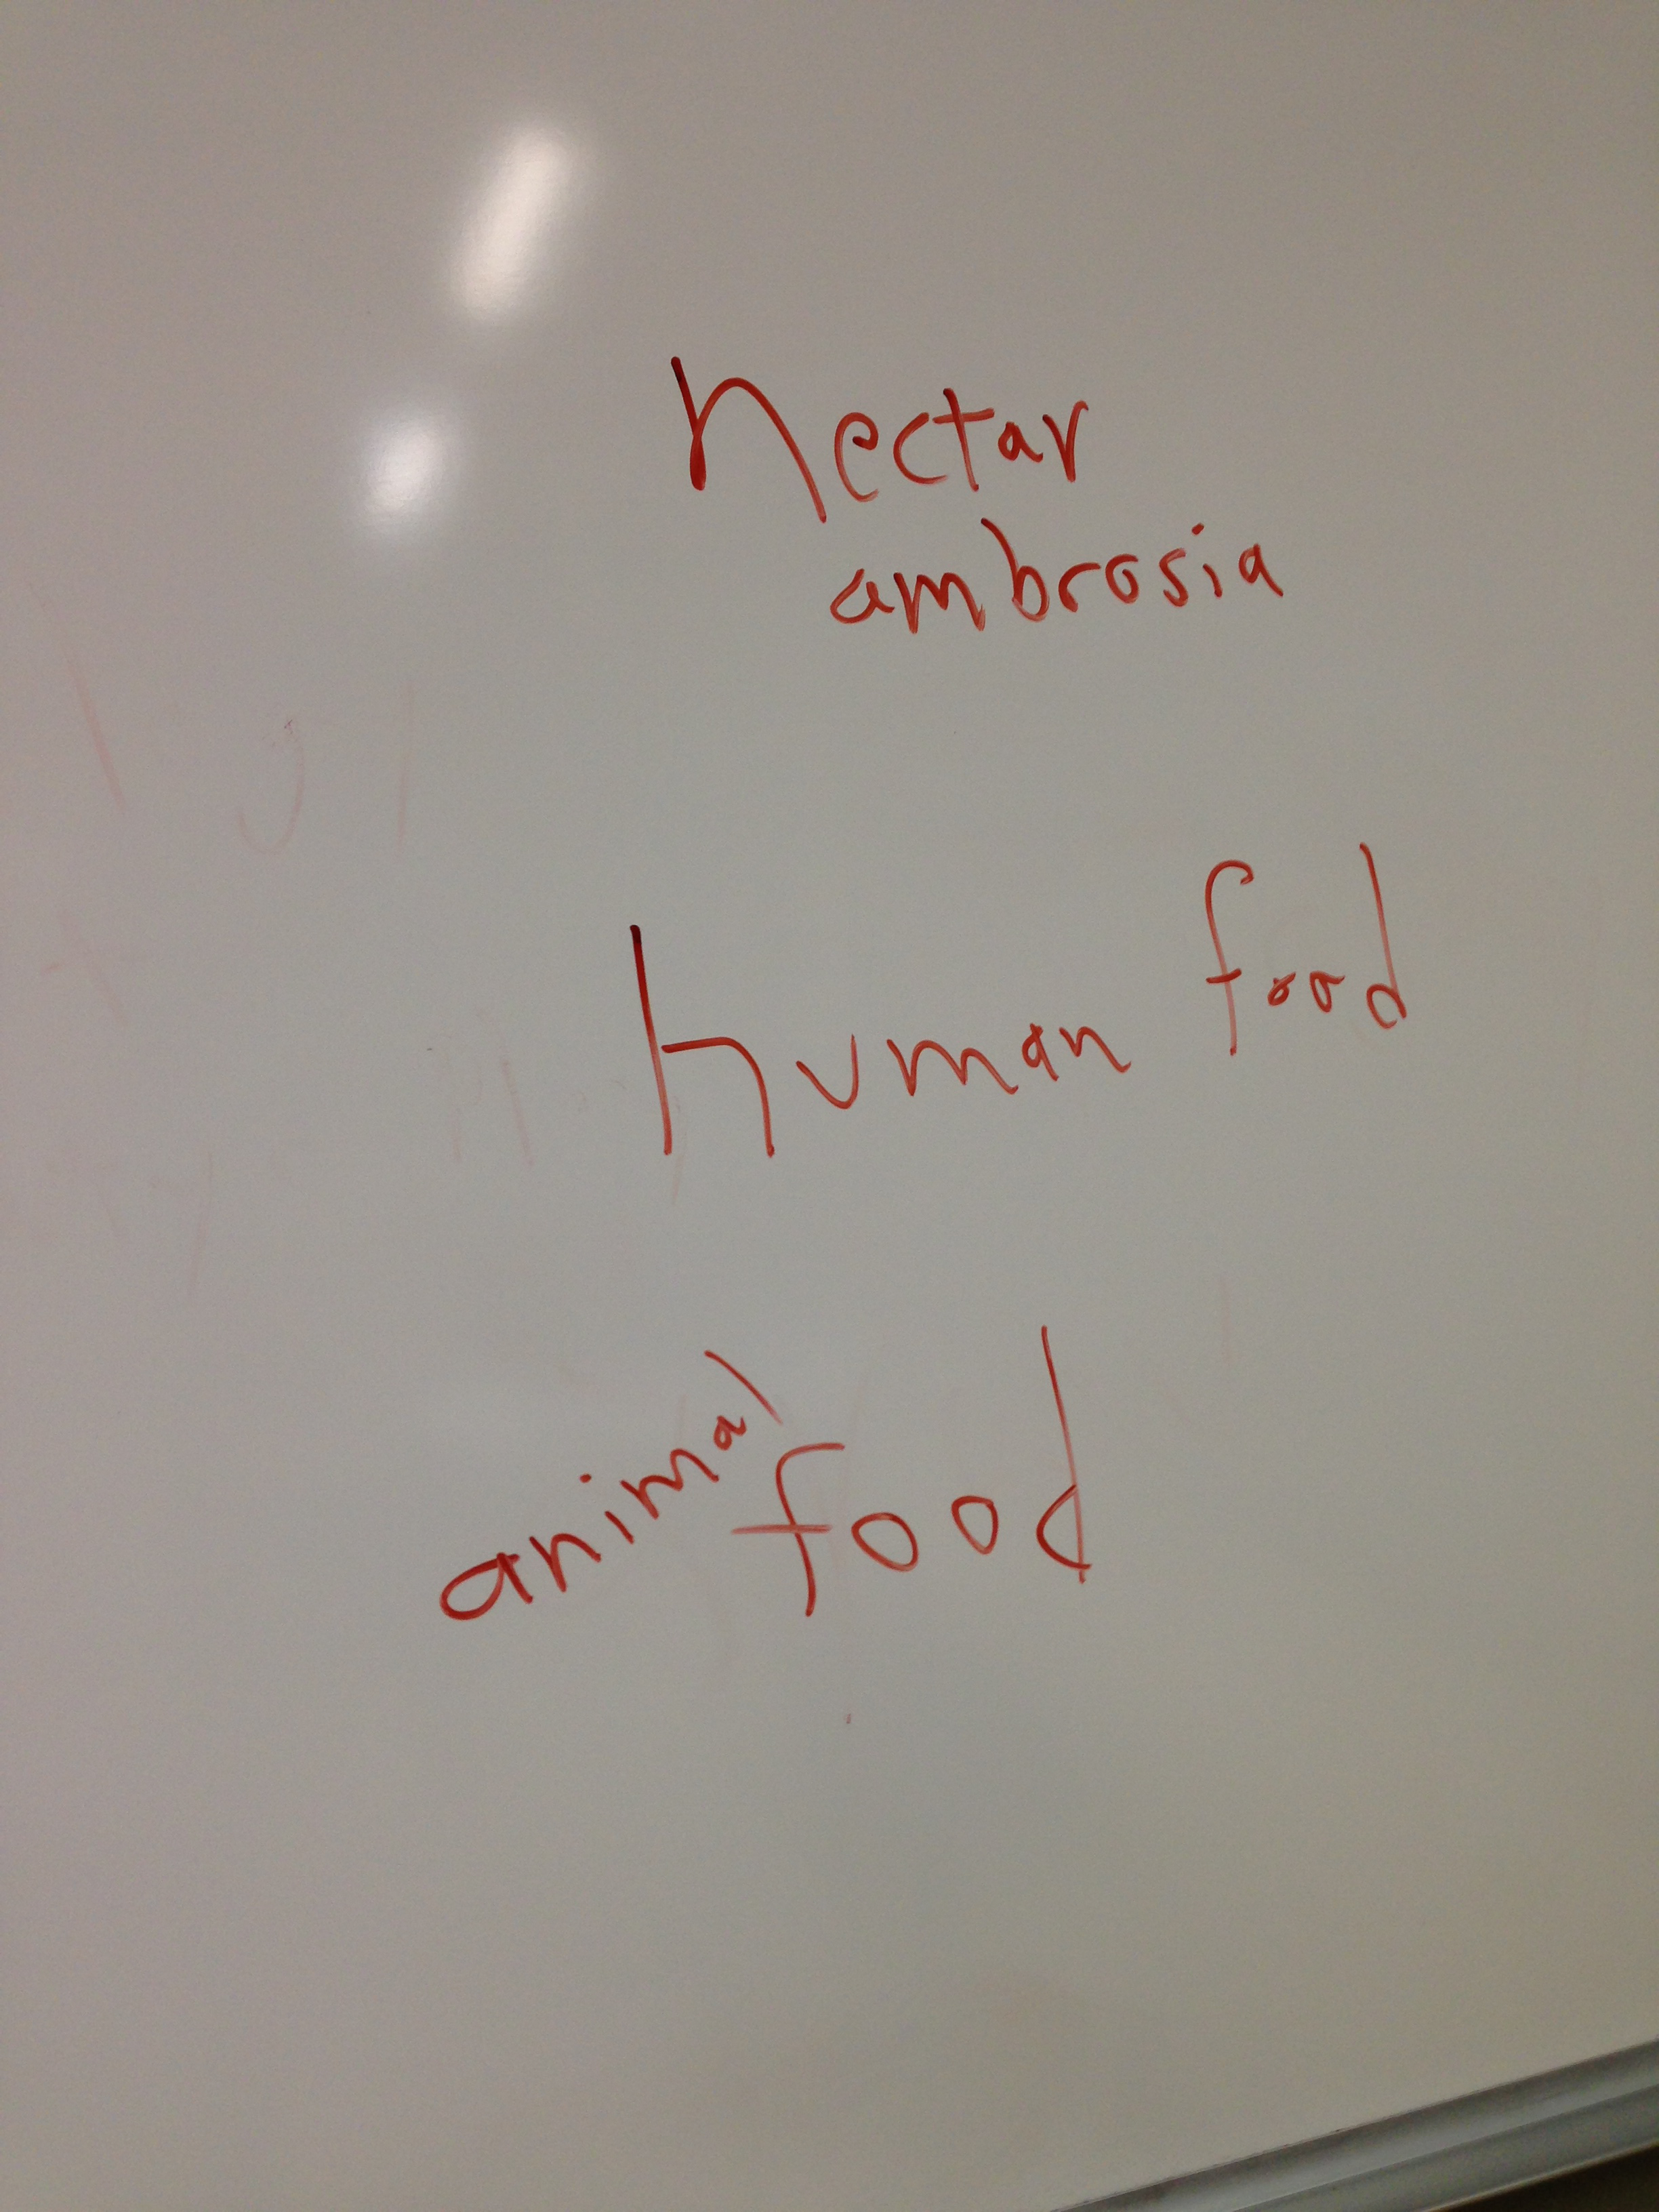 nectar
ambrosia
human food
animal food